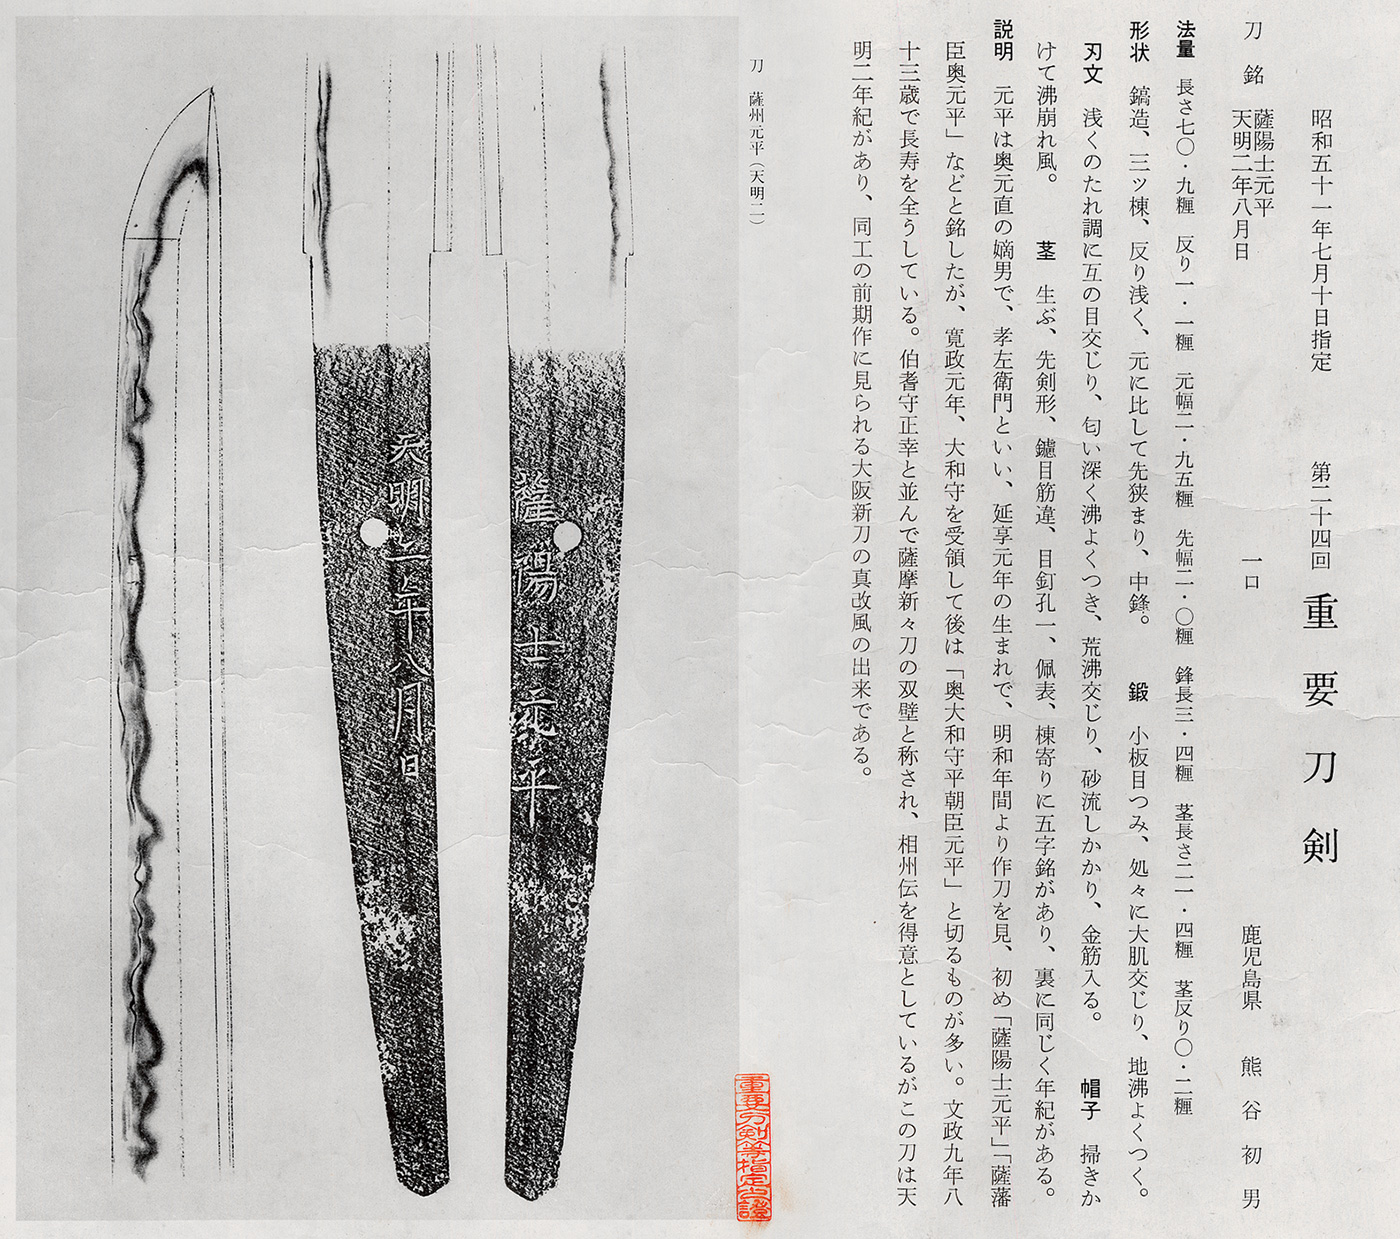 昭和五十一年七月十日指定　第二十四回　重要刀剣
刀　銘　薩陽士元平
天明二年八月日　一口　鹿児島県　熊谷初男
法量　長さ七〇・九糎　反り一・一糎　元幅二・九五糎　先幅二・〇糎　鋒長三・四糎　茎長さ二一・四糎　茎反り〇・二糎
形状　鎬造、三ツ棟、反り浅く、元に比して先狭まり、中鋒。　鍛　小板目つみ、処々に大肌交じり、地沸よくつく。
刃文　浅くのたれ調に互の目交じり、匂い深く沸よくつき、荒沸交じり、砂流しかかり、金筋入る。　帽子　掃きか
けて沸崩れ風。　茎　生ぶ、先剣形、鑢目筋違、目釘孔一、佩表、棟寄りに五字銘があり、裏に同じく年紀がある。
説明　元平は奥元直の嫡男で、孝左衛門といい、延享元年の生まれで、明和年間より作刀を見、初め「薩陽士元平」「薩藩
臣奥元平」などと銘したが、寛政元年、大和守を受領して後は「奥大和守平朝臣元平」と切るものが多い。文政九年八
十三歳で長寿を全うしている。伯耆守正幸と並んで薩摩新々刀の双壁と称され、相州伝を得意としているがこの刀は天
明二年紀があり、同工の前期作に見られる大阪新刀の真改風の出来である。
刀　薩州元平（天明二）
重要刀剣等指定之證
薩陽士元平
天明二年八月日